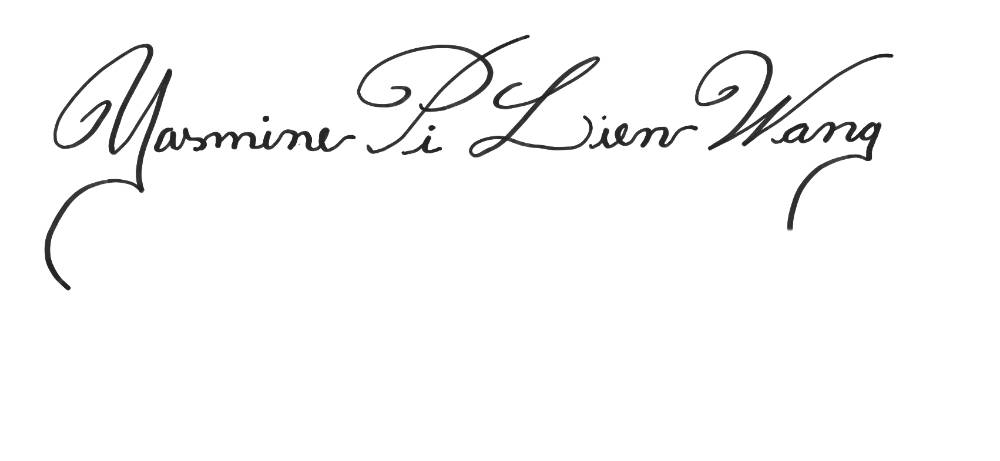 Yasmine Pi Lien Wang